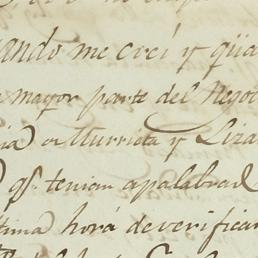 ando me creí y que
mayor parte del Negoc
o Murrieta y Liza
qe tenian apalabrad
tima hora de verificar